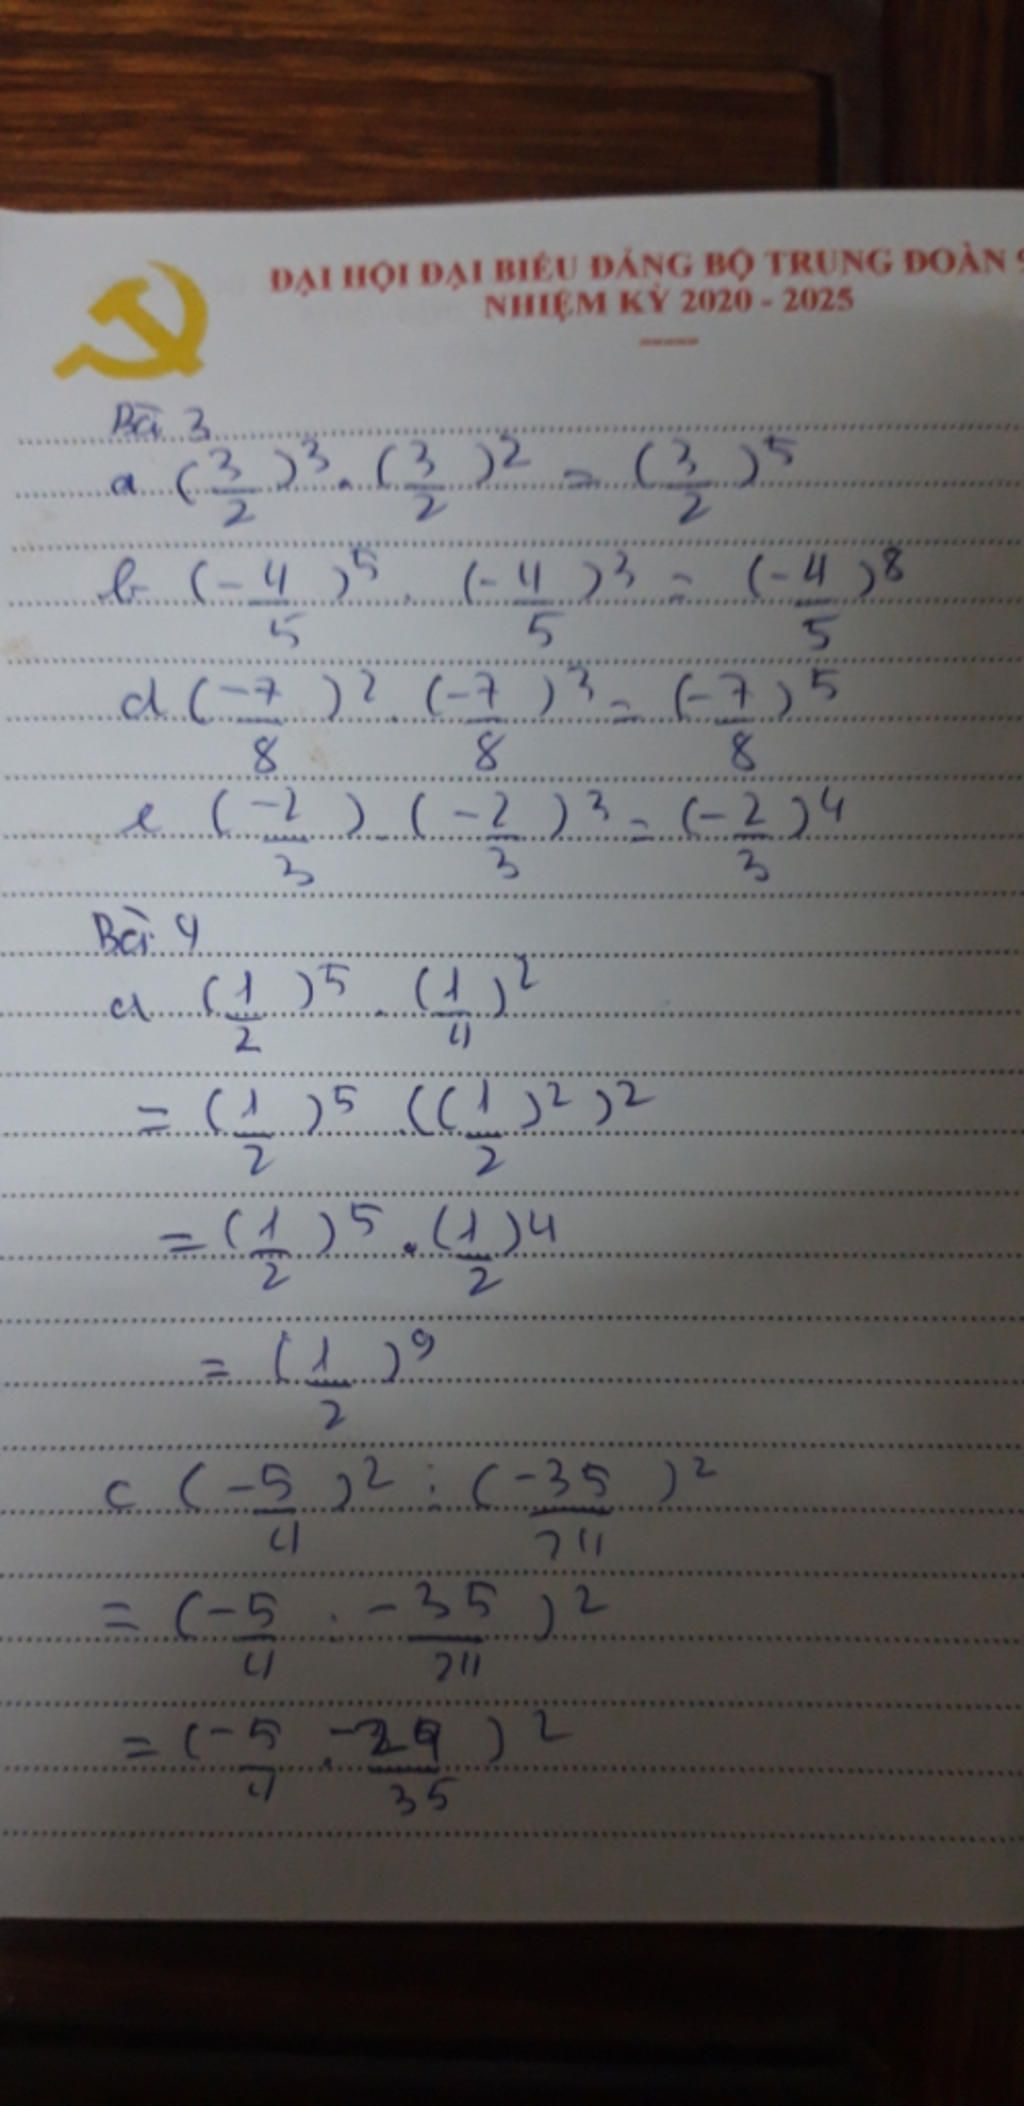 ĐẠI HỘI ĐẠI BIỂU ĐẢNG BỘ TRUNG ĐOÀN 9
NHIỆM KỲ 2020 - 2025
Bài 3
a (3/2)^3 . (3/2)^2 = (3/2)^5
b (-4/5)^5 . (-4/5)^3 = (-4/5)^8
d (-7/8)^2 . (-7/8)^3 = (-7/8)^5
e (-2/3) . (-2/3)^3 = (-2/3)^4
Bài 4
a (1/2)^5 . (1/4)^2
= (1/2)^5 . ((1/2)^2)^2
= (1/2)^5 . (1/2)^4
= (1/2)^9
c (-5/4)^2 : (-35/24)^2
= (-5/4 : -35/24)^2
= (-5/4 . -24/35)^2